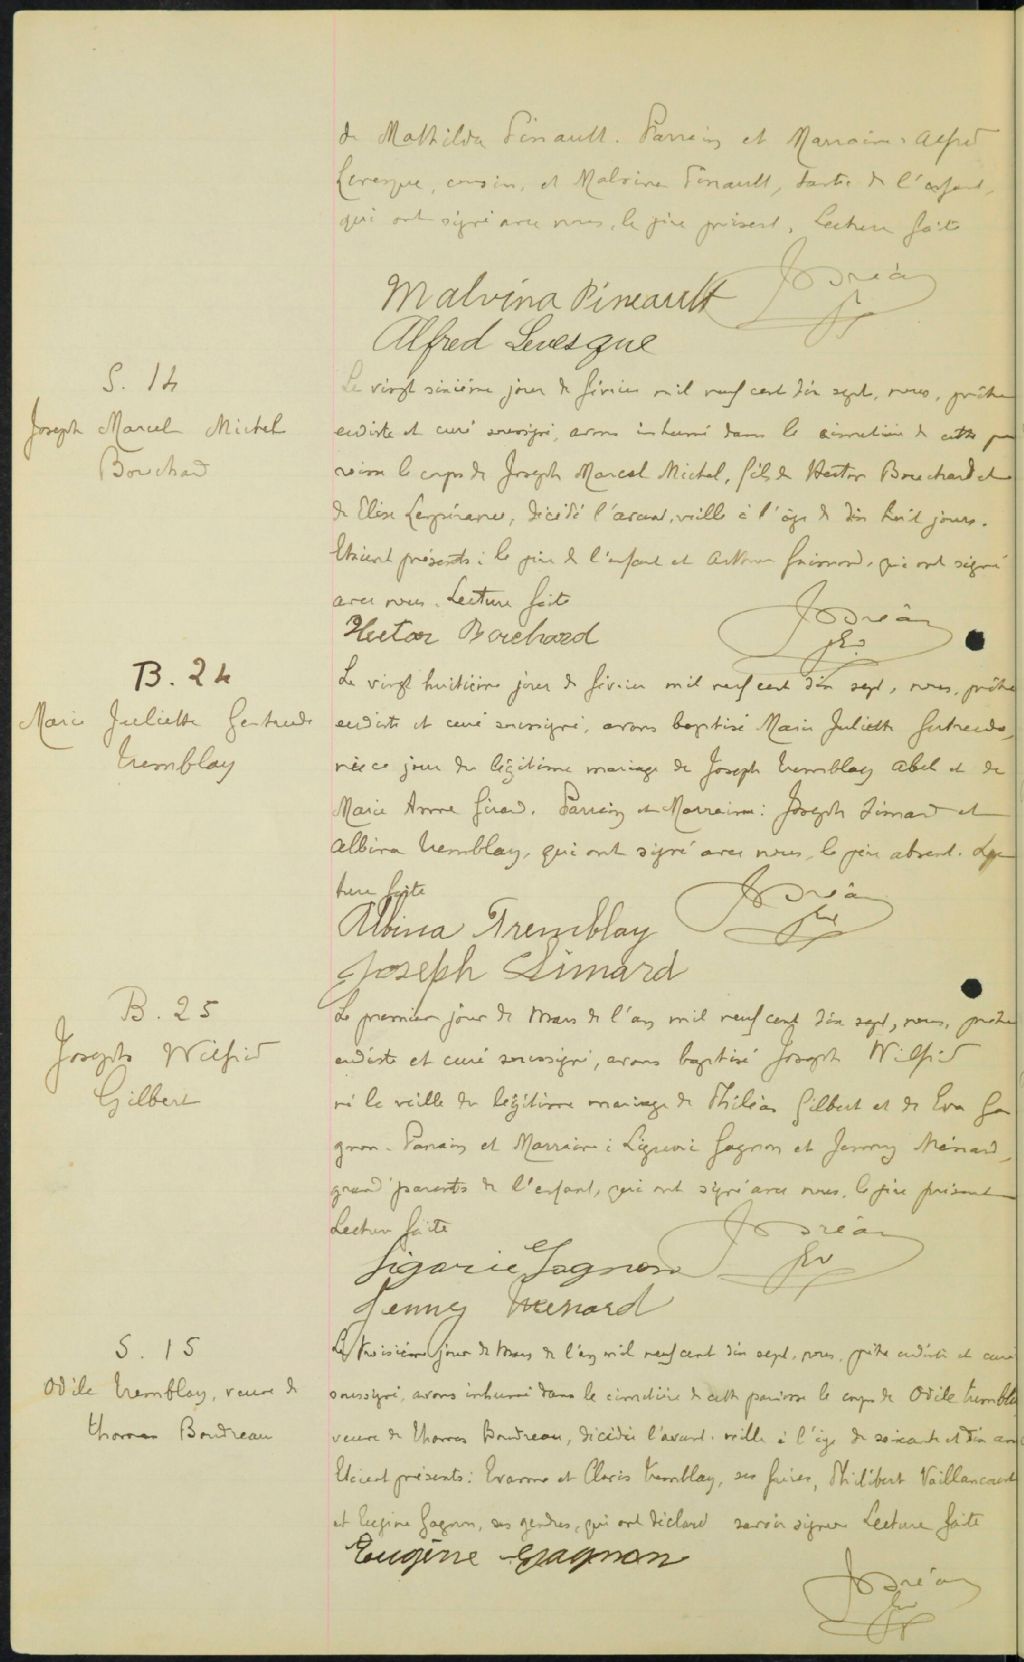 de Mathilda Pinault. Parrain et Marraine: Alfred
Levesque, cousin, et Malvina Pinault, tante de l'enfant,
qui ont signé avec nous, le père présent. Lecture faite
J Dréan
Malvina Pineault
Ptr
Alfred Levesque
S. 14
Joseph Marcel Michel
Bouchard
Le vingt sixième jour de février mil neuf cent dix sept, nous, prêtre
eudiste et curé soussigné, avons inhumé dans le cimetière de cette pa
roisse le corps de Joseph Marcel Michel, fils de Hector Bouchard et
de Elise Lespérance, décédé l'avant-veille à l'âge de dix huit jours.
Etaient présents: le père de l'enfant et Arthur, qui ont signé
avec nous. Lecture faite
J Dréan
Hector Bouchard
B. 24
Marie Juliette Gertrude
Tremblay
Le vingt huitième jour de février mil neuf cent dix sept, nous, prêtre
eudiste et curé soussigné, avons baptisé Marie Juliette Gertrude,
née ce jour du légitime mariage de Joseph Tremblay Abel et de
Marie Anne Girard. Parrain et Marraine: Joseph Simard et
Albina Tremblay, qui ont signé avec nous, le père absent. Lec
ture faite
J Dréan
Albina Tremblay
Joseph Simard
B. 25
Joseph Wilfrid
Gilbert
Le premier jour de Mars de l'an mil neuf cent dix sept, nous, prêtre
eudiste et curé soussigné, avons baptisé Joseph Wilfrid
né la veille du légitime mariage de Philéas Gilbert et de Eva Ga
gnon. Parrain et Marraine: Liguori Gagnon et Jenny Ménard,
grand'parents de l'enfant, qui ont signé avec nous, le père présent
Lecture faite
J Dréan
Ligorie Gagnon
Jenny Menard
S. 15
Odile Tremblay, veuve de
Thomas Boudreau
Le troisième jour de Mars de l'an mil neuf cent dix sept, nous, prêtre eudiste et curé
soussigné, avons inhumé dans le cimetière de cette paroisse le corps de Odile Tremblay
veuve de Thomas Boudreau, décédée l'avant-veille à l'âge de soixante et dix ans
Etaient présents: et Tremblay, ses frères, Philibert Vaillancourt
et Eugène Gagnon, ses gendres, qui ont déclaré savoir signer Lecture faite
Eugène Gagnon
J Dréan